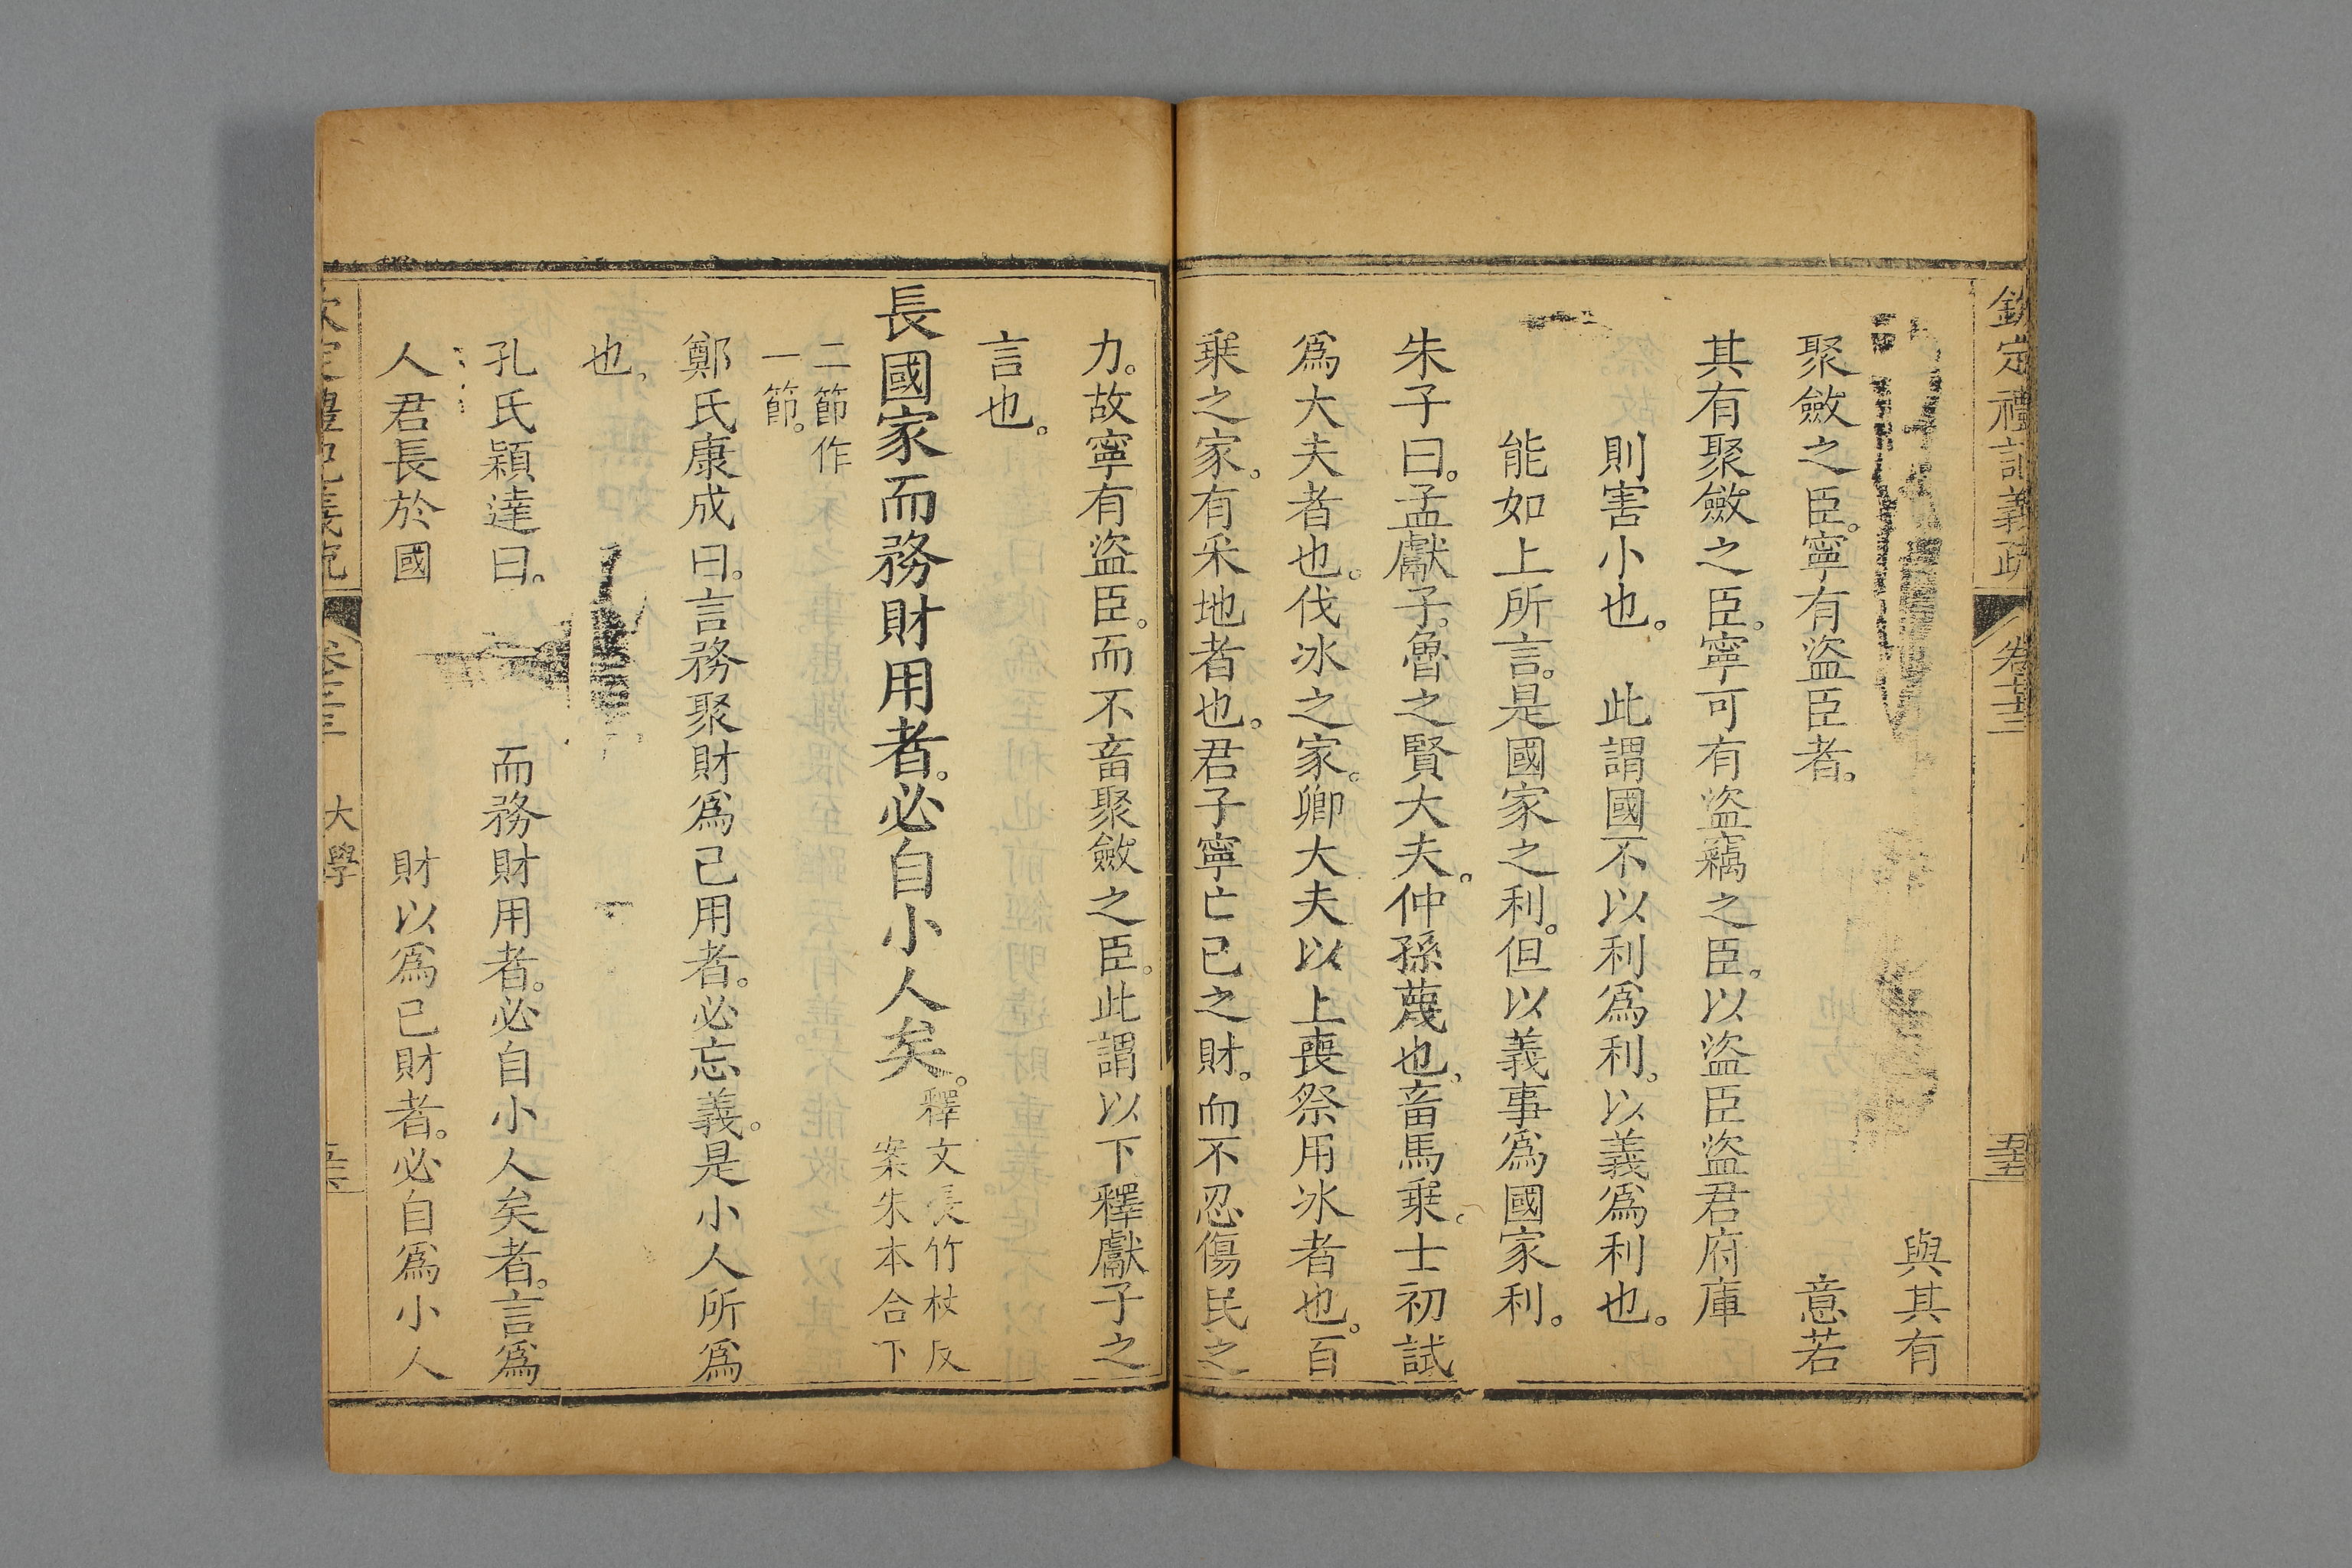 欽定禮記義疏
卷
與其有
聚斂之臣。寧有盜臣者。意若
其有聚斂之臣。寧可有盜竊之臣。以盜臣盜君府庫
則害小也。此謂國不以利爲利。以義爲利也。
能如上所言。是國家之利。但以義事爲國家利。
朱子曰。孟獻子。魯之賢大夫。仲孫蔑也。畜馬乗。士初試
爲大夫者也。伐冰之家。卿大夫以上喪祭用冰者也。百
乗之家。有采地者也。君子寧亡已之財。而不忍傷民之
力。故寧有盜臣。而不畜聚斂之臣。此謂以下釋獻子之
言也。
長國家而務財用者。必自小人矣。
釋文長竹杖反
案朱本合下
二節作
一節。
鄭氏康成曰。言務聚財爲己用者。必忘義。是小人所爲
也。
孔氏穎達曰。而務財用者。必自小人矣者。言爲
人君長於國財以爲已財者。必自爲小人
大學